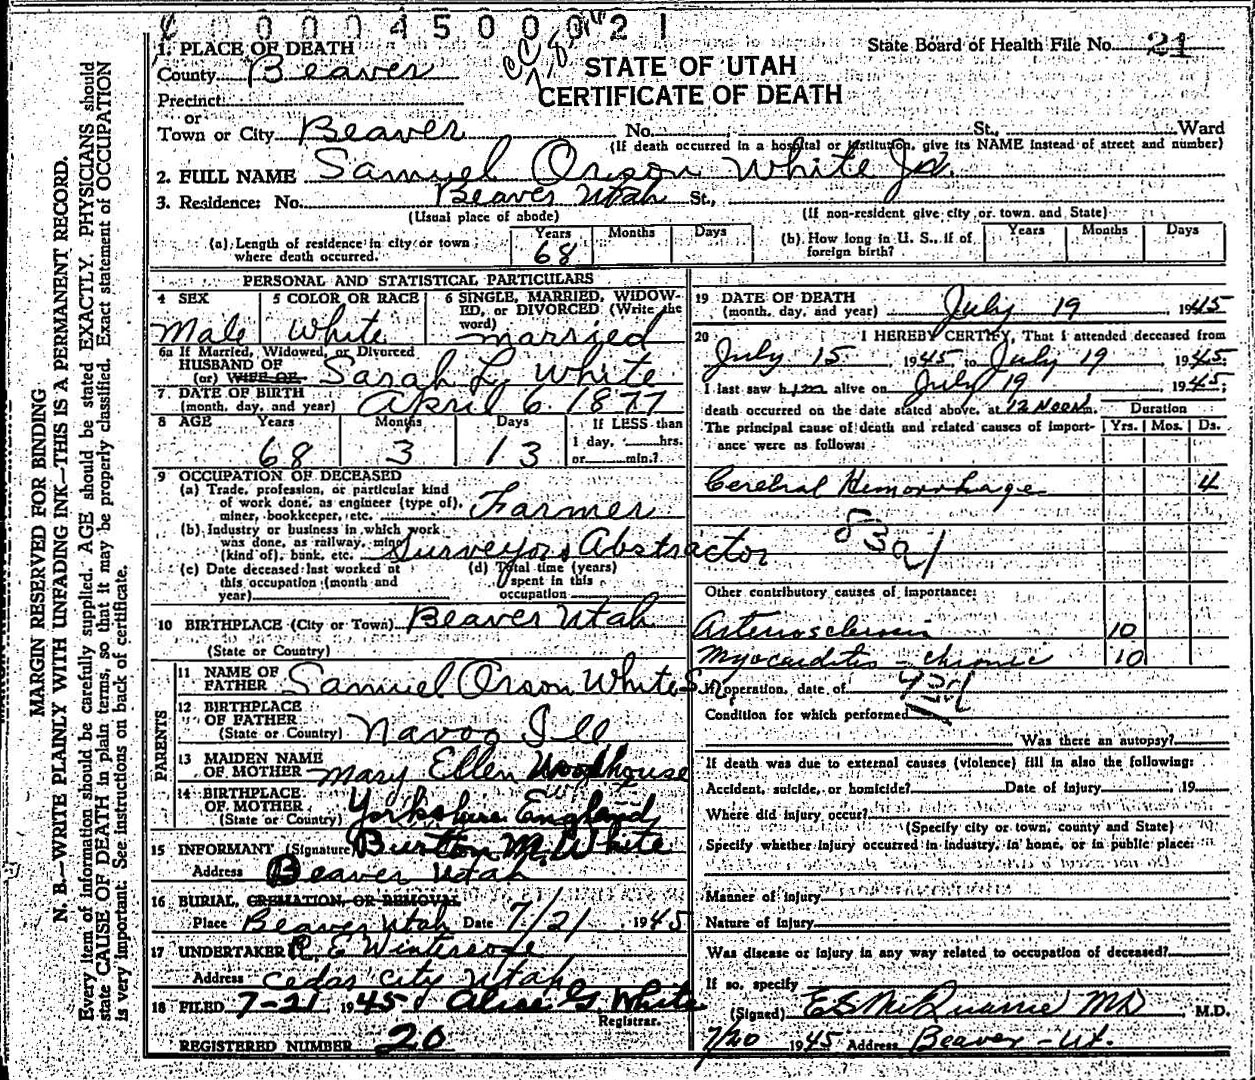 0 0 0 4 5 0 0 0 2 1
State Board of Health File No. 21
STATE OF UTAH
CERTIFICATE OF DEATH
1. PLACE OF DEATH
County Beaver
Precinct
or
Town or City Beaver No. St., Ward
(If death occurred in a hospital or institution, give its NAME instead of street and number)
2. FULL NAME Samuel Orson White Jr.
3. Residence: No. Beaver Utah St.,
(Usual place of abode) (If non-resident give city or town and State)
(a) Length of residence in city or town where death occurred. Years 68 Months Days
(b) How long in U. S., if of foreign birth? Years Months Days
PERSONAL AND STATISTICAL PARTICULARS
4 SEX Male
5 COLOR OR RACE White
6 SINGLE, MARRIED, WIDOWED, or DIVORCED (Write the word) married
6a If Married, Widowed, or Divorced
HUSBAND OF
(or) WIFE OF Sarah Ly White
7 DATE OF BIRTH
(month, day, and year) April 6 1877
8 AGE Years 68 Months 3 Days 13 If LESS than 1 day, hrs. or min.?
9 OCCUPATION OF DECEASED
(a) Trade, profession, or particular kind
of work done, as engineer (type of),
miner, bookkeeper, etc. Farmer
(b) Industry or business in which work
was done, as railway, mine
(kind of), bank, etc. Surveyor & Abstractor
(c) Date deceased last worked at
this occupation (month and
year)
(d) Total time (years)
spent in this
occupation
10 BIRTHPLACE (City or Town) Beaver Utah
(State or Country)
PARENTS
11 NAME OF
FATHER Samuel Orson White Sr.
12 BIRTHPLACE
OF FATHER
(State or Country) Navoo Ill
13 MAIDEN NAME
OF MOTHER Mary Ellen Woodhouse
14 BIRTHPLACE
OF MOTHER
(State or Country) Yorkshire England
15 INFORMANT (Signature) Burton M. White
Address Beaver Utah
16 BURIAL, CREMATION, OR REMOVAL
Place Beaver Utah Date 7/21, 1945
17 UNDERTAKER R. E Winterrose
Address Cedar City Utah
18 FILED 7-21, 1945 Alise G. White
Registrar.
REGISTERED NUMBER 20
19 DATE OF DEATH
(month, day, and year) July 19, 1945
20 I HEREBY CERTIFY, That I attended deceased from
July 15, 1945 to July 19, 1945
I last saw him alive on July 19, 1945;
death occurred on the date stated above, at 12 Noon m. Duration
The principal cause of death and related causes of importance were as follows: Yrs. Mos. Ds.
Cerebral Hemorrhage 4
83a
Other contributory causes of importance:
Arteriosclerosis 10
Myocarditis - chronic 10
If operation, date of
Condition for which performed
Was there an autopsy?
If death was due to external causes (violence) fill in also the following:
Accident, suicide, or homicide? Date of injury , 19
Where did injury occur?
(Specify city or town, county and State)
Specify whether injury occurred in industry, in home, or in public place:
Manner of injury
Nature of injury
Was disease or injury in any way related to occupation of deceased?
If so, specify
(Signed) E S McQuarrie MD M.D.
7/20 1945 Address Beaver - Ut.
MARGIN RESERVED FOR BINDING
N. B.—WRITE PLAINLY WITH UNFADING INK—THIS IS A PERMANENT RECORD.
Every item of information should be carefully supplied. AGE should be stated EXACTLY. PHYSICIANS should
state CAUSE OF DEATH in plain terms, so that it may be properly classified. Exact statement of OCCUPATION
is very important. See instructions on back of certificate.